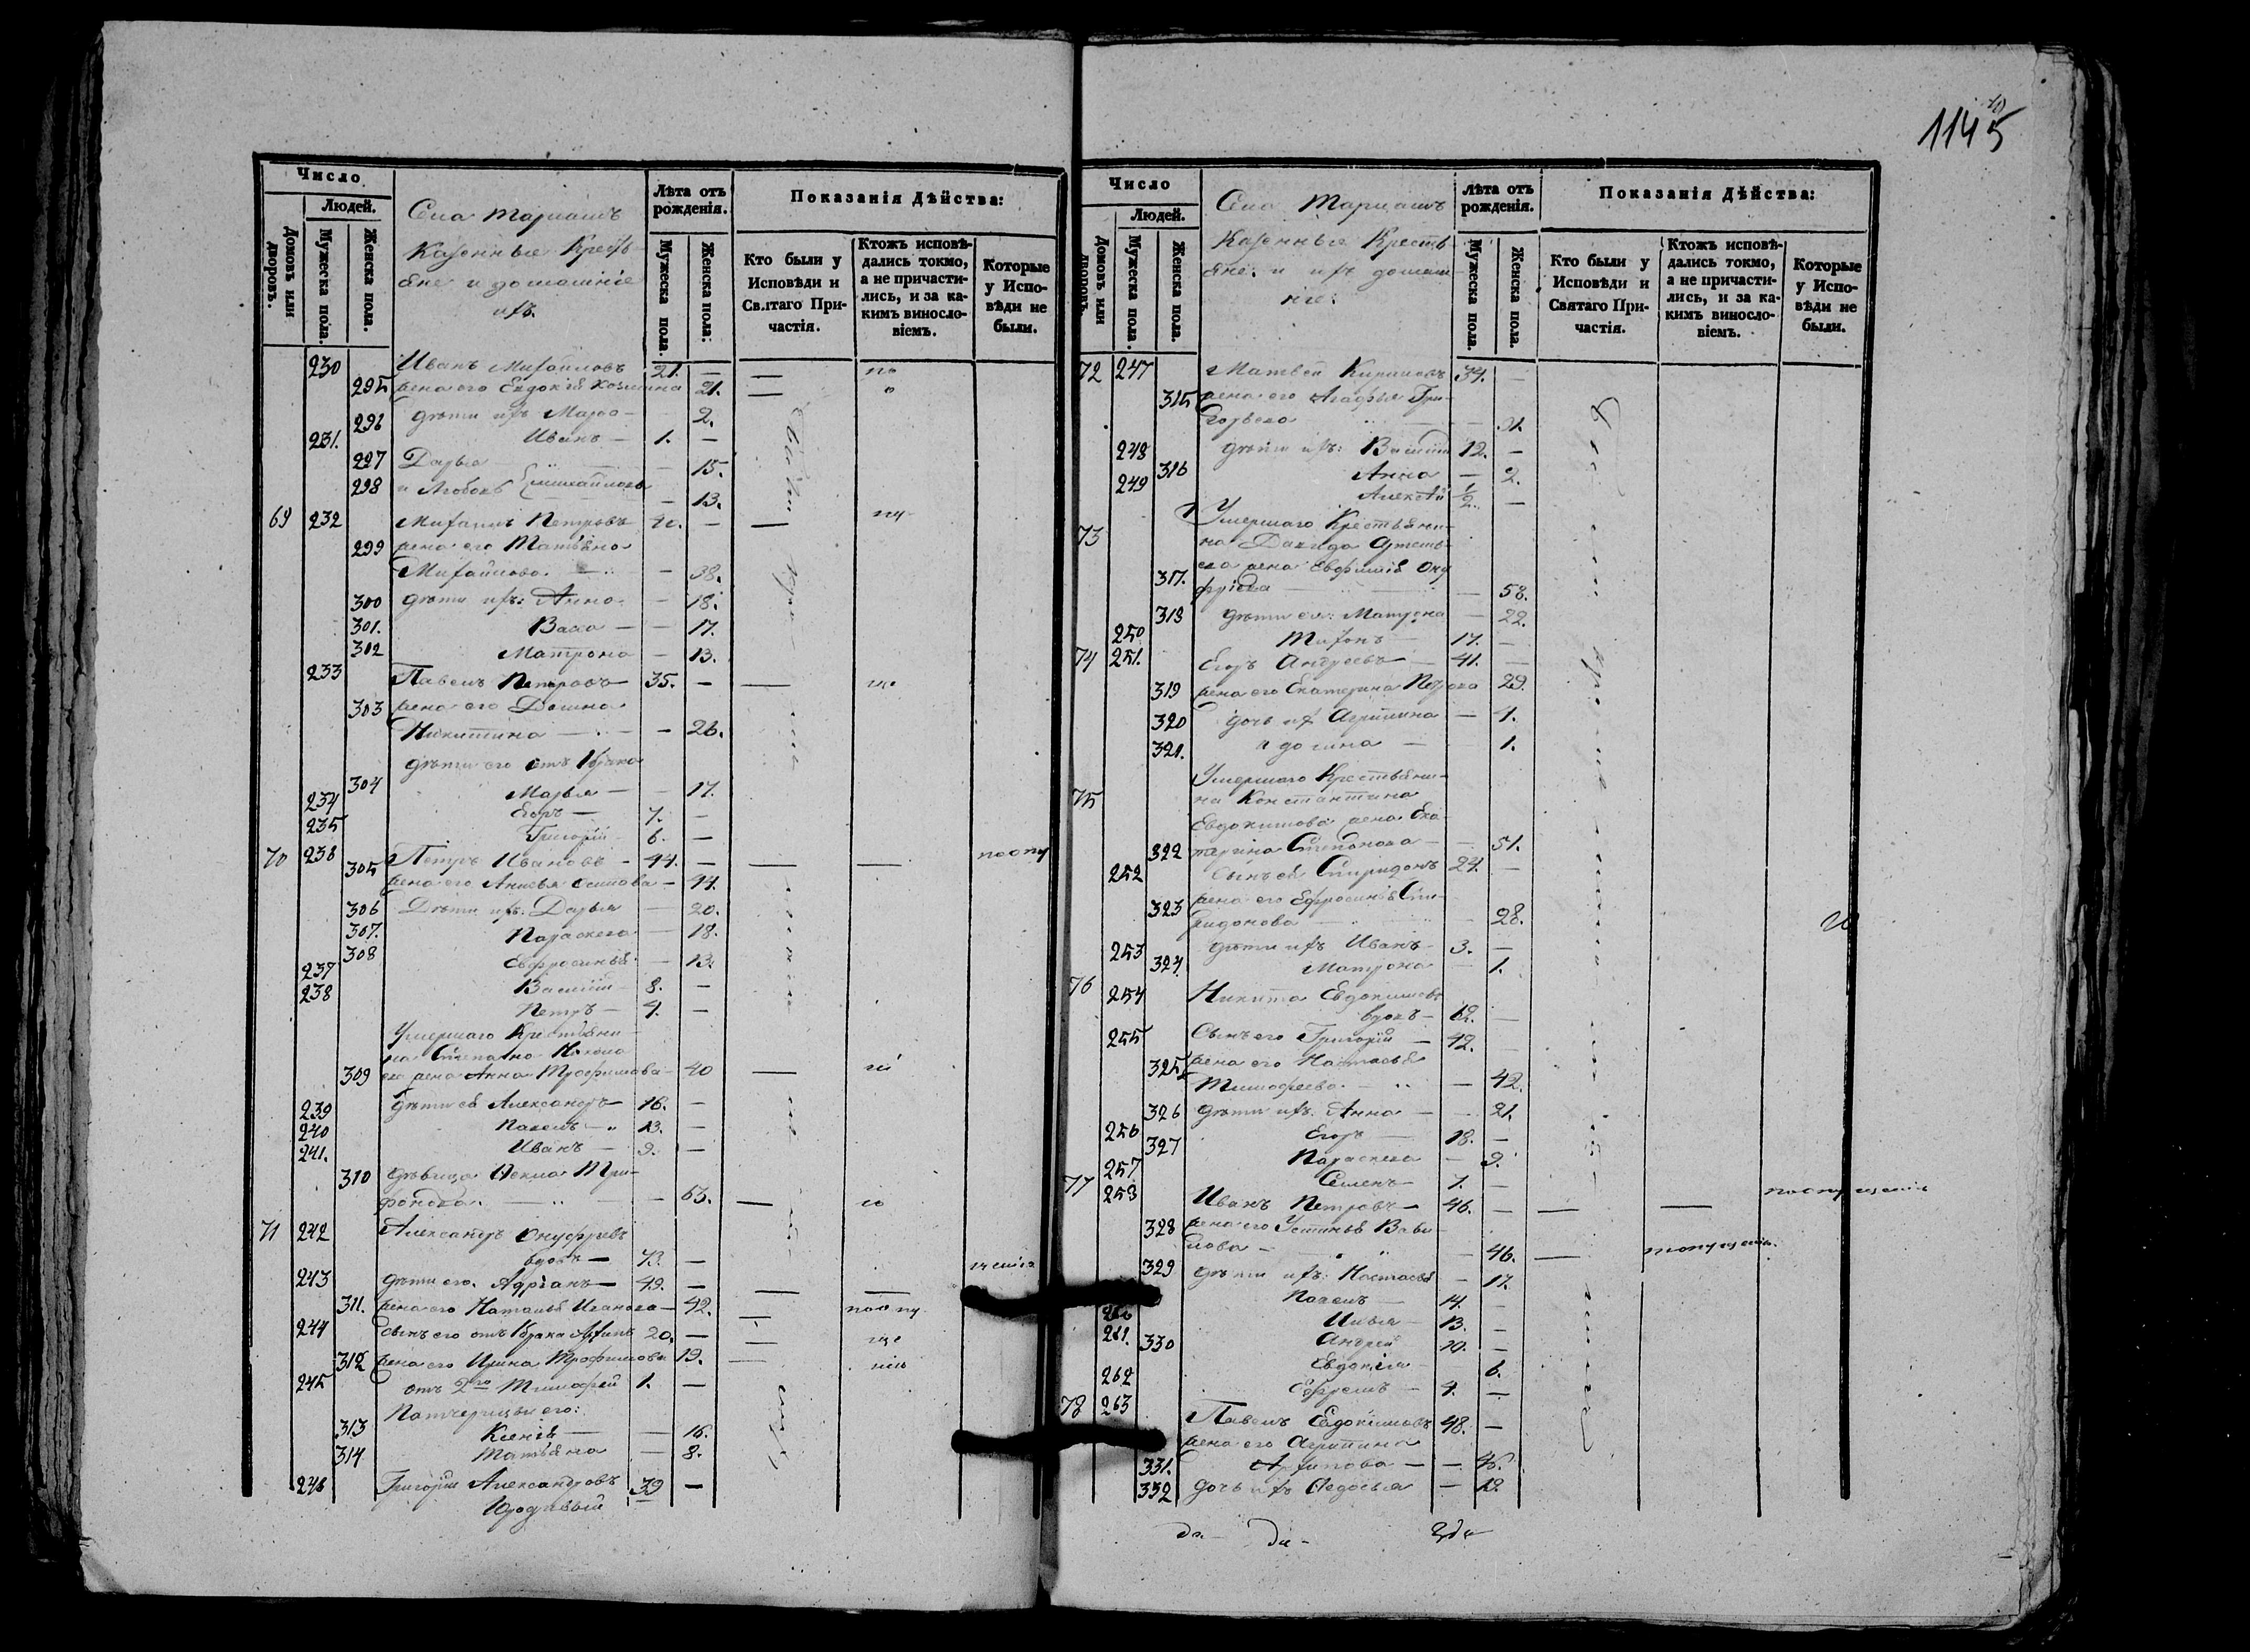 1145
Число
Людей.
Домовъ или дворовъ.
Мужеска пола.
Женска пола.
Села Тармашъ
Казенные Кресть-
яне и домашніе
ихъ.
Лѣта отъ рожденія.
Мужеска пола.
Женска пола.
Показанія Дѣйства:
Кто были у Исповѣди и Святаго Причастія.
Ктожъ исповѣ-
дались токмо,
а не причасти-
лись, и за ка-
кимъ винослo-
віемъ.
Которые
у Испо-
вѣди не
были.
230 Иванъ Михайловъ 21. —
295 жена его Евдокія Козмина 21.
296 дѣти ихъ Марѳа — 2.
231. Иванъ — 1. —
297 Дарья — 15.
298 и Любовь Михайловы — 13.
69 232 Михаилъ Петровъ 40. —
299 жена его Татьяна
Михайлова — 38.
300 дѣти ихъ: Анна — 18.
301. Васса — 17.
302 Матрона — 13.
233 Павелъ Петровъ 35. —
303 жена его Домна
Никитина — 26.
дѣти его отъ 1 брака
304 Марья — 17.
234 Егоръ — 7. —
235 Григорій 6. —
70 238 Петръ Ивановъ 44. —
305 жена его Анисья Осипова — 44.
306 Дѣти ихъ: Дарья — 20.
307. Параскева — 18.
308 Евфросинья — 13.
237 Василій 8. —
238 Петръ — 4. —
Умершаго Крестьяни-
на Степана
309 жена Анна Трофимова — 40
239 дѣти ея Александръ — 16. —
240 Павелъ — 13. —
241. Иванъ — 9. —
310 дѣвица Ѳекла Три-
фонова — 63.
71 242 Александръ Онуфріевъ
вдовъ — 73. —
243 дѣти его. Адріанъ — 49. —
311. жена его Наталья Иванова — 42.
244 сынъ его отъ 1 брака 20. —
312 жена его Ирина Трофимова 19.
245 отъ 2го Тимофей 1. —
Патчерицы его:
313 Ксенія — 16.
314 Татьяна — 8.
246 Григорій Александровъ 39 —
Юродивый
Число
Людей.
Домовъ или дворовъ.
Мужеска пола.
Женска пола.
Села Тармашъ
Казенные Кресть-
яне и ихъ домаш-
ніе:
Лѣта отъ рожденія.
Мужеска пола.
Женска пола.
Показанія Дѣйства:
Кто были у Исповѣди и Святаго Причастія.
Ктожъ исповѣ-
дались токмо,
а не причасти-
лись, и за ка-
кимъ винослo-
віемъ.
Которые
у Испо-
вѣди не
были.
72 247 Матвей Кириловъ 34. —
315 жена его Агафья Гри-
горьева — 31.
248 дѣти ихъ: Василій 12. —
316 Анна — 2.
249 Алексѣй 1/2. —
73 Умершаго Крестьяни-
на Давида Артемь-
ева жена Евфимія Ону
317. фріева — 58.
318 дѣти ея: Матрона — 22.
250 Тихонъ 17. —
74 251. Егоръ Андреевъ — 41. —
319 жена его Екатерина Петрова 29.
320 дочь их Агрипина — 4.
321. — 1.
75 Умершаго Крестьяни-
на Константина
Евдокимова жена Ека-
322 терина Степанова — 51.
252 Сынъ ея Спиридонъ 24. —
323 жена его Ефросинія Спи-
ридонова — 28.
253 дѣти ихъ Иванъ 3. —
324 Матрона — 1.
76 254 Никита Евдокимовъ
вдовъ — 62. —
255 Сынъ его Григорій — 42. —
325 жена его Настасья
Тимофеева — 42.
326 дѣти ихъ: Анна — 21.
256 Егоръ — 18. —
327 Параскева — 9.
257 Семенъ 1. —
77 258 Иванъ Петровъ — 46. —
328 жена его Устинья Вави-
лова — 46.
329 дѣти ихъ: Настасья — 17.
Павелъ 14. —
Илья 13. —
261. Андрей 10. —
330 Евдокія 6.
262 Ефремъ — 4. —
78 263 Павелъ Евдокимовъ 48. —
жена его Агрипина
331. Архипова — 46.
332 дочь ихъ Ѳедосья —